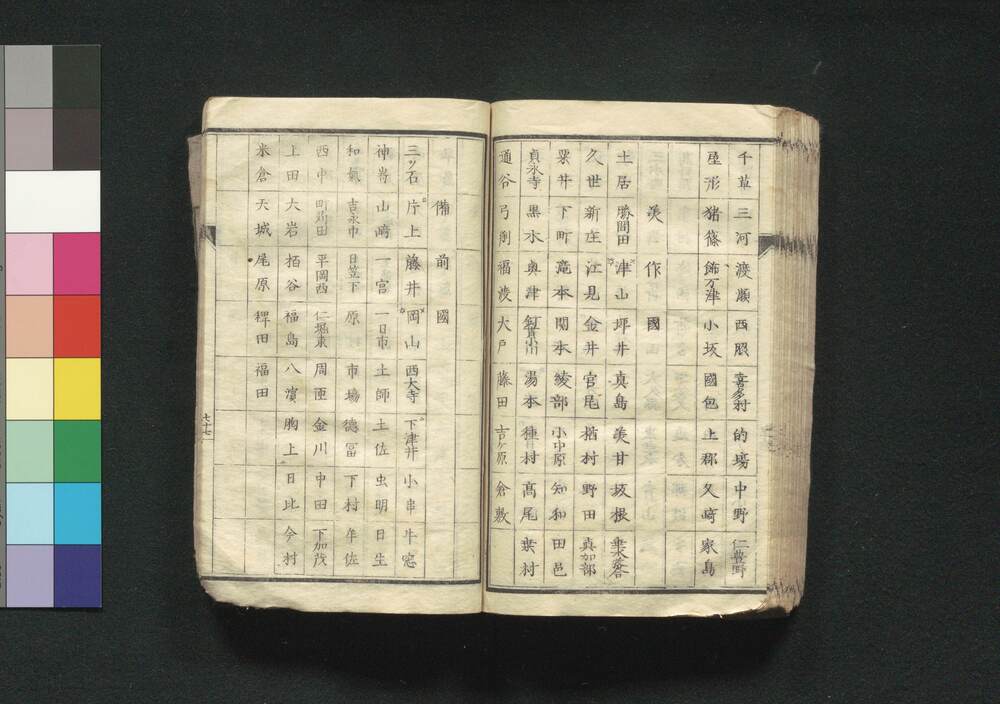 千草 三河 渡瀬 西照 喜多村 的場 中野 仁豊野
屋形 猪篠 飾万津 小坂 國包 上郡 久﨑 家島
美作國
土居 勝間田 津山 坪井 真島 美甘 坂根
久世 新庄 江見 金井 官尾 楢村 野田 真加部
粟井 下町 滝本 関本 綾部 小中原 知和 田邑
貞永寺 黒水 奥津 湯本 種村 髙尾 葉村
通谷 弓削 福渡 大戸 藤田 吉ヶ原 倉敷
備前國
三ツ石 片上 藤井 岡山 西大寺 下津井 小串 牛窓
神﨑 山﨑 一宮 一日市 土師 土佐 虫明 日生
和氣 吉永市 日笠下 原 市場 德冨 下村 牟佐
西中 町苅田 平岡西 仁堀東 周匝 金川 中田 下加茂
上田 大岩 栢谷 福島 八濱 胸上 日比 今村
米倉 天城 尾原 稗田 福田
七十七